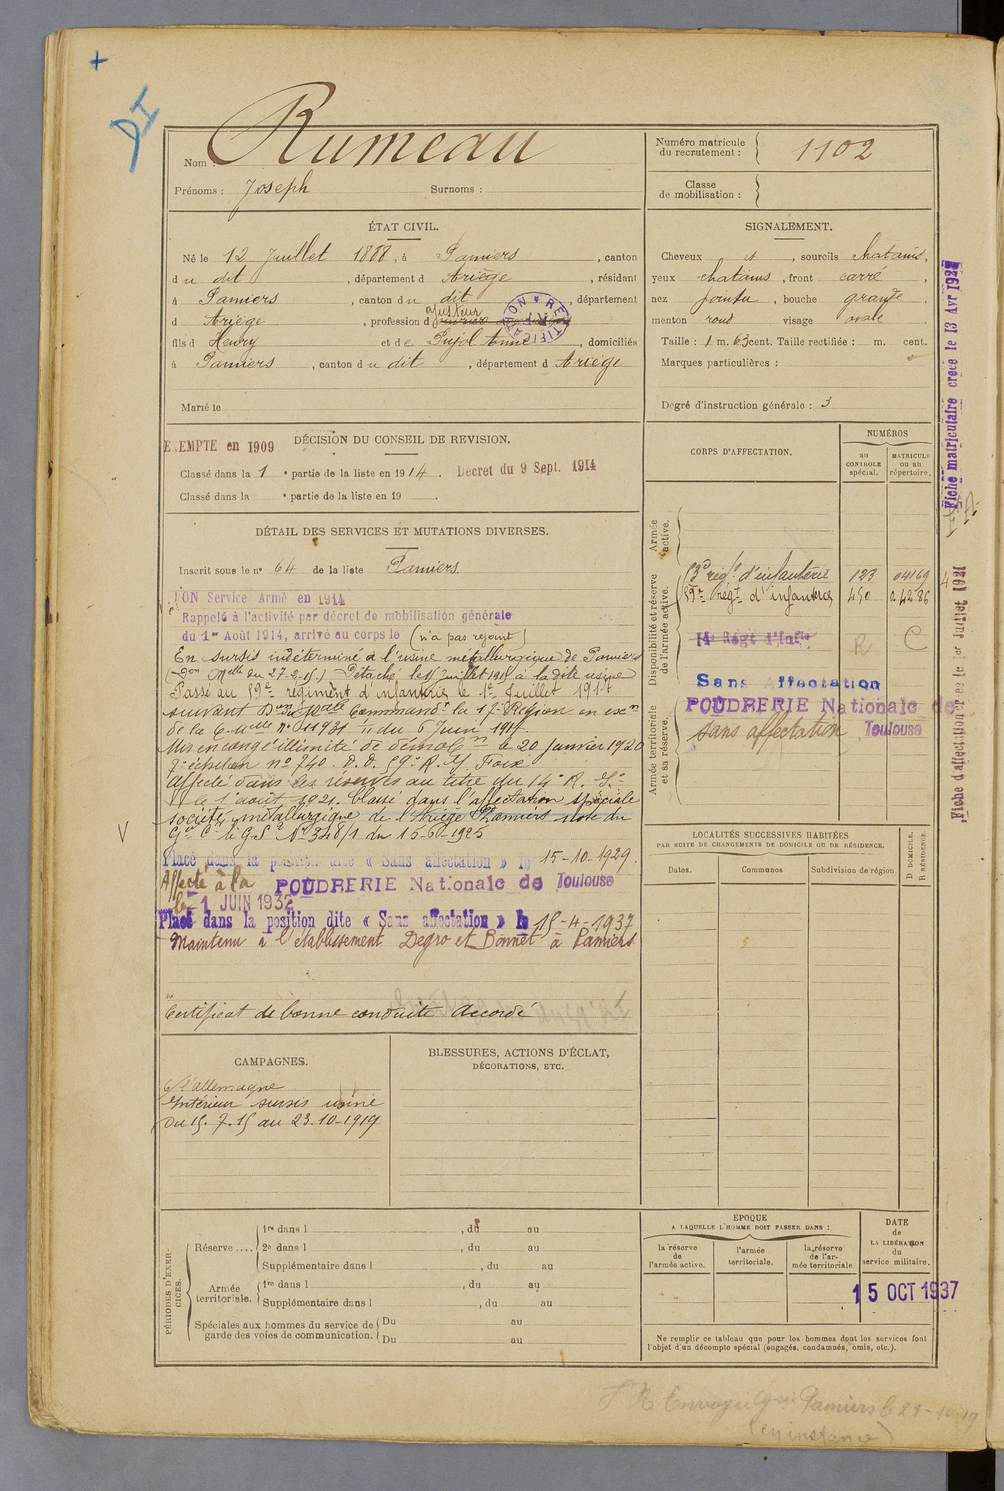 +
DI
Nom : Rumeau
Prénoms : Joseph Surnoms :
Numéro matricule du recrutement : 1102
Classe de mobilisation :
ÉTAT CIVIL.
Né le 12 Juillet 1888, à Pamiers, canton
du dit, département d Ariège, résidant
à Pamiers, canton du dit, département
d Ariège, profession d ajusteur
RECTIFICATION
fils d Henry et de Pujol Anne, domiciliés
à Pamiers, canton du dit, département d Ariège
Marié le
SIGNALEMENT.
Cheveux et, sourcils chatains,
yeux chatains, front carré,
nez pointu, bouche grande
menton rond visage ovale
Taille : 1 m. 63 cent. Taille rectifiée : m. cent.
Marques particulières :
Degré d'instruction générale : 3
EXEMPTE en 1909 DÉCISION DU CONSEIL DE REVISION.
Classé dans la 1 e partie de la liste en 1914. Decret du 9 Sept. 1914
Classé dans la e partie de la liste en 19 .
DÉTAIL DES SERVICES ET MUTATIONS DIVERSES.
Inscrit sous le no 64 de la liste Pamiers
BON Service Armé en 1914
Rappelé à l'activité par décret de mobilisation générale
du 1er Août 1914, arrivé au corps le (n'a pas rejoint)
En sursis indéterminé à l'usine métallurgique de Pamiers
du 27-2-15) Détaché le 15 juillet 1915 à la dite usine
Passé au 59e régiment d'infanterie le 1er Juillet 1917
suivant la 17e Région en exon
de la no 11 du 6 Juin 1917.
Mis en congé illimité de démobon le 20 janvier 1920
échelon no 740. D.D. 59e R.I. Foix
Affecté dans les réserves au titre du 14e R.I.
le 1 août 1921. Classé dans l'affectation spéciale
société métallurgique de l'Ariège Pamiers note du
No 348/1 du 15-6-1925
Placé dans la position dite « Sans affectation » le 15-10-1929.
Affecté à la POUDRERIE Nationale de Toulouse
le -1 JUIN 1932
Placé dans la position dite « Sans affectation » le 15-4-1937
Maintenu à l'établissement Degro et Bonnet à Pamiers
Certificat de bonne conduite Accordé
CORPS D'AFFECTATION.
NUMÉROS
au CONTROLE spécial.
MATRICULE ou au répertoire.
Armée active.
Disponibilité et réserve de l'armée active.
Armée territoriale et sa réserve.
régt d'infanterie 123 04169
59e régt d'infanterie 490
14e Régt d'Infie R C
Sans Affectation
POUDRERIE Nationale de
sans affectation Toulouse
LOCALITÉS SUCCESSIVES HABITÉES
PAR SUITE DE CHANGEMENTS DE DOMICILE OU DE RÉSIDENCE.
Dates.
Communes
Subdivision de région.
D DOMICILE.
R RÉSIDENCE.
Fiche matriculaire créée le 13 Avr 1927
Fiche d'affectation créée le 1er Juillet 1921
CAMPAGNES.
Intérieur sursis usine
du 15.7.15 au 23.10-1919
BLESSURES, ACTIONS D'ÉCLAT,
DÉCORATIONS, ETC.
PÉRIODES D'EXERCICES.
Réserve ....
1re dans l , du au
2e dans l , du au
Supplémentaire dans l , du au
Armée territoriale.
1re dans l , du au
Supplémentaire dans l , du au
Spéciales aux hommes du service de garde des voies de communication.
Du au
Du au
ÉPOQUE
A LAQUELLE L'HOMME DOIT PASSER DANS :
la réserve de l'armée active.
l'armée territoriale.
la réserve de l'armée territoriale
DATE de LA LIBÉRATION du service militaire.
15 OCT 1937
Ne remplir ce tableau que pour les hommes dont les services font
l'objet d'un décompte spécial (engagés, condamnés, omis, etc.).
Envoyé Pamiers le 21-10-19
(en instance)